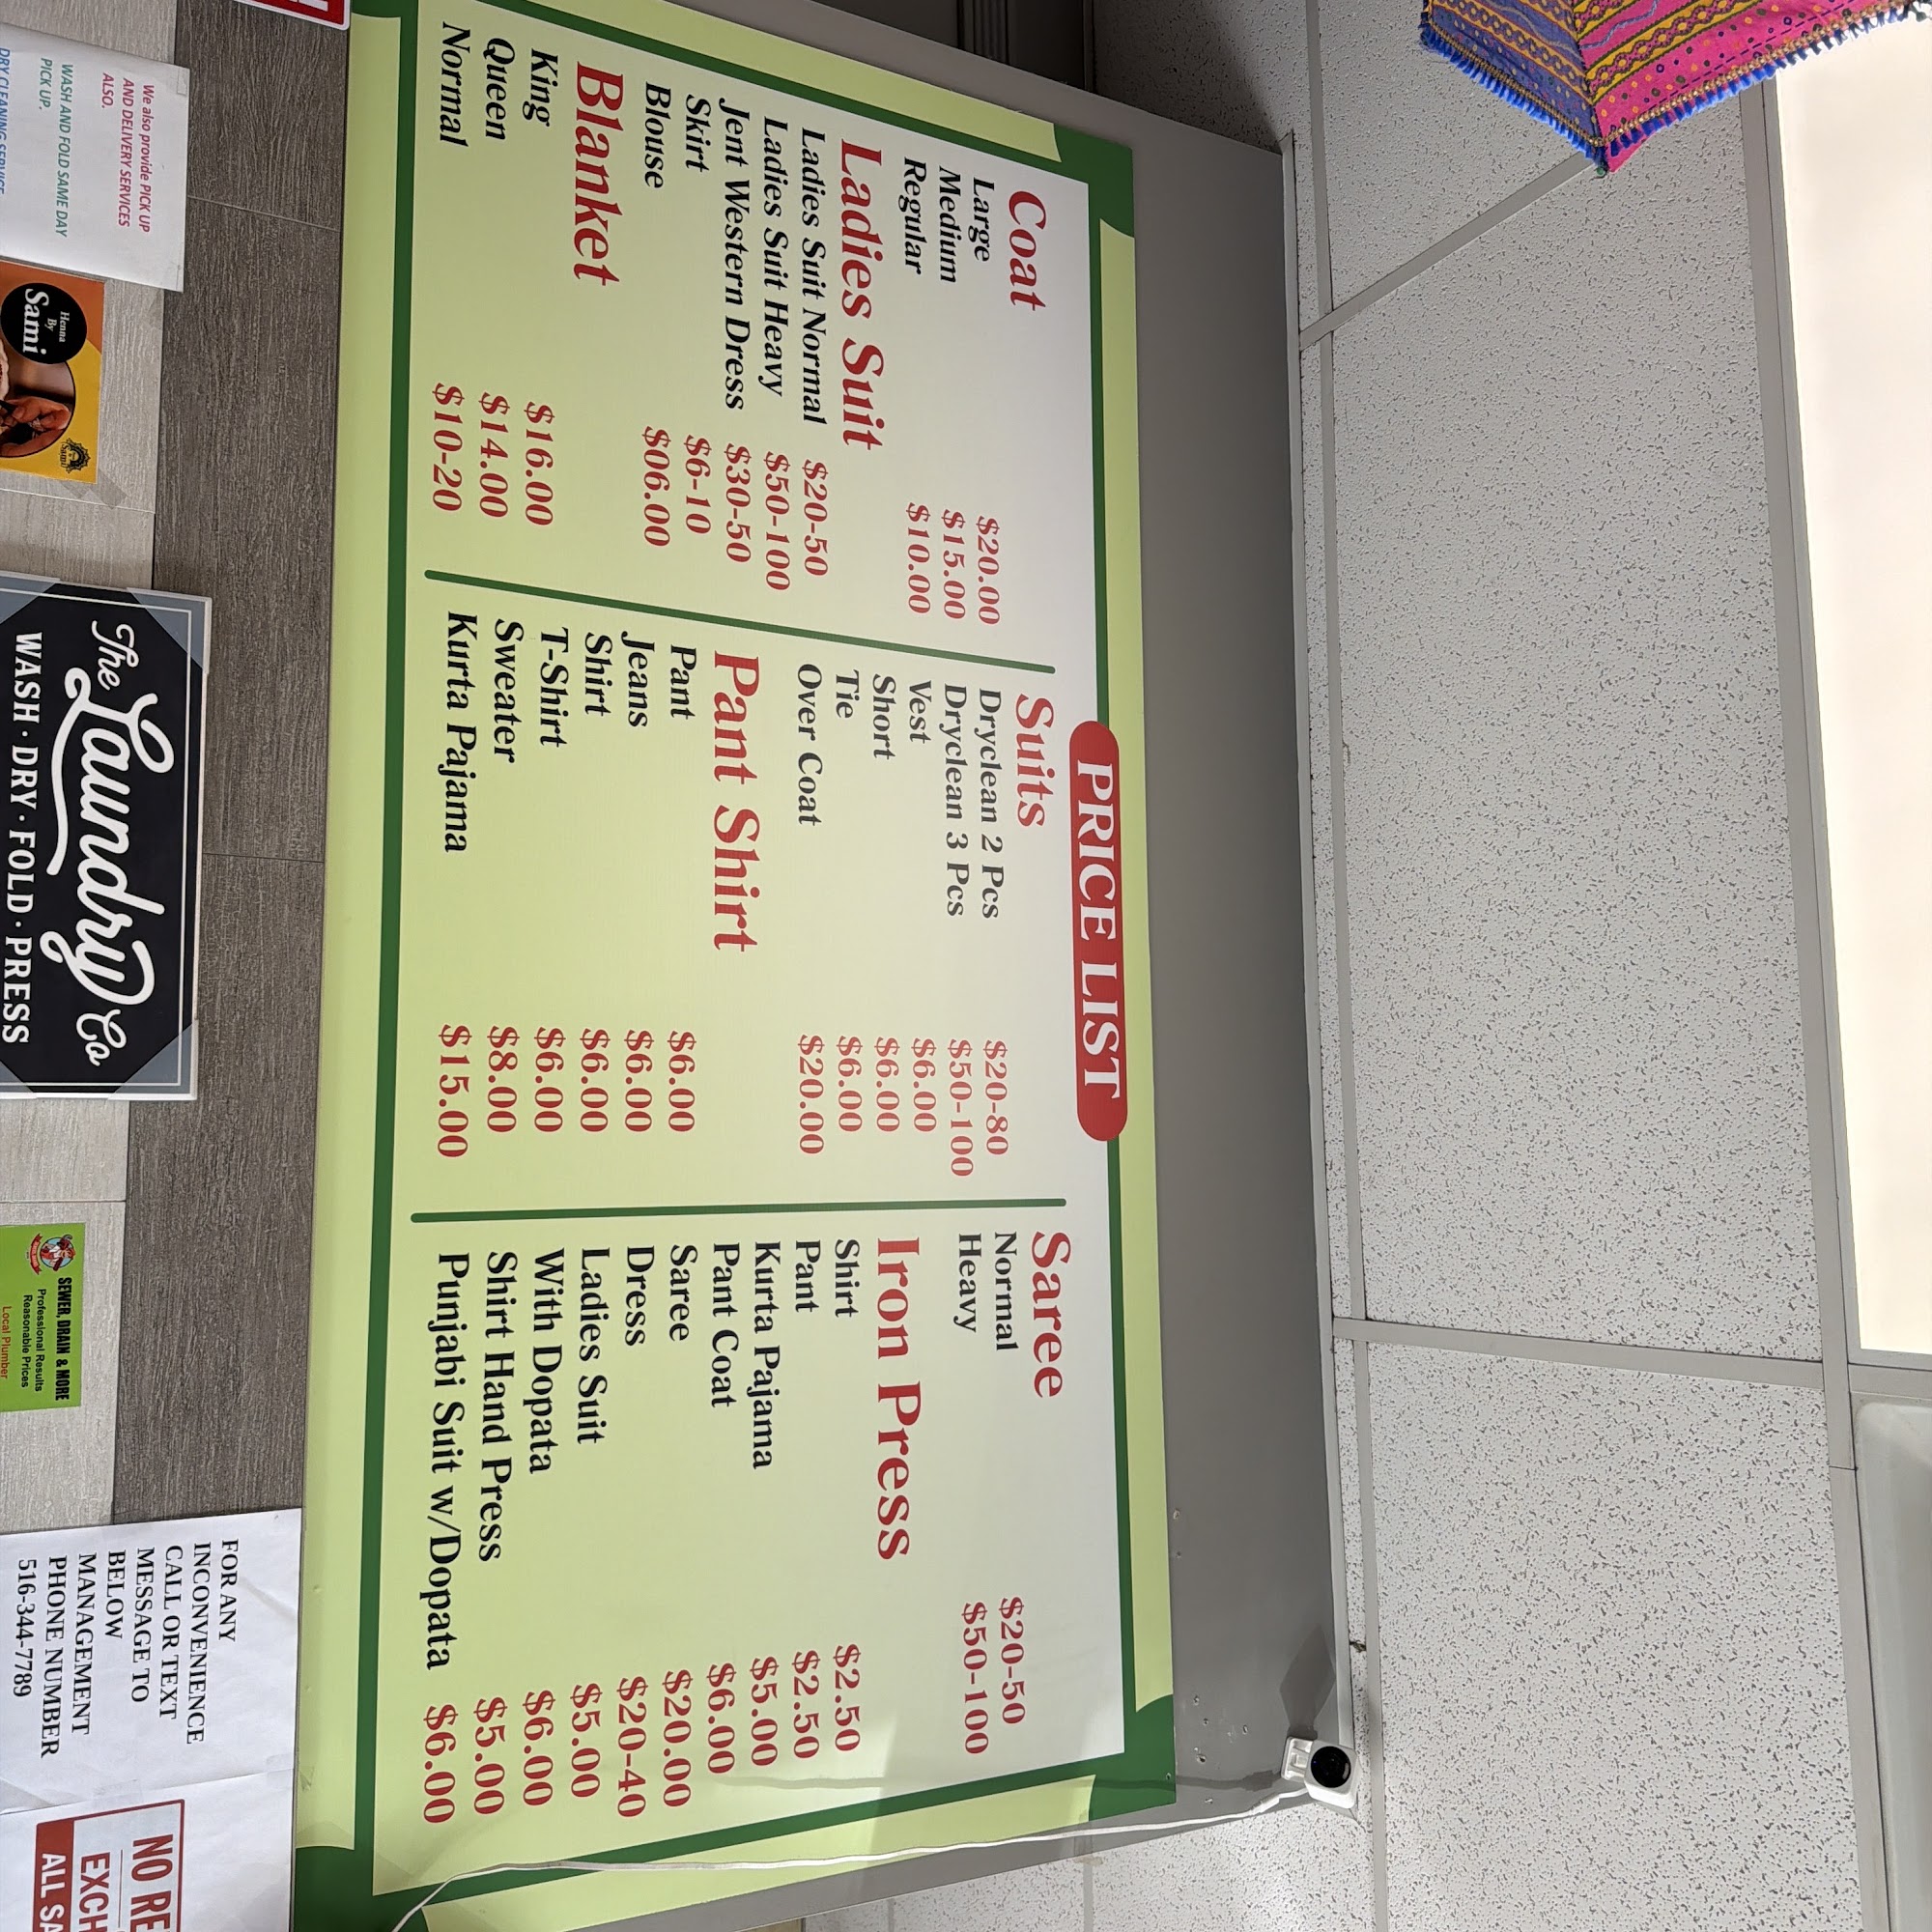 PRICE LIST
Coat
Large $20.00
Medium $15.00
Regular $10.00
Ladies Suit
Ladies Suit Normal $20-50
Ladies Suit Heavy $50-100
Jent Western Dress $30-50
Skirt $6-10
Blouse $06.00
Blanket
King $16.00
Queen $14.00
Normal $10-20
Suits
Dryclean 2 Pcs $20-80
Dryclean 3 Pcs $50-100
Vest $6.00
Short $6.00
Tie $6.00
Over Coat $20.00
Pant Shirt
Pant $6.00
Jeans $6.00
Shirt $6.00
T-Shirt $6.00
Sweater $8.00
Kurta Pajama $15.00
Saree
Normal $20-50
Heavy $50-100
Iron Press
Shirt $2.50
Pant $2.50
Kurta Pajama $5.00
Pant Coat $6.00
Saree $20.00
Dress $20-40
Ladies Suit $5.00
With Dopata $6.00
Shirt Hand Press $5.00
Punjabi Suit w/Dopata $6.00
We also provide PICK UP
AND DELIVERY SERVICES
ALSO.
WASH AND FOLD SAME DAY
PICK UP.
DRY CLEANING SERVICE
Henna
By
Sami
The
Laundry Co
WASH · DRY · FOLD · PRESS
SEWER, DRAIN & MORE
Professional Results
Reasonable Prices
Local Plumber
FOR ANY
INCONVENIENCE
CALL OR TEXT
MESSAGE TO
BELOW
MANAGEMENT
PHONE NUMBER
516-344-7789
NO RE
EXCH
ALL SA